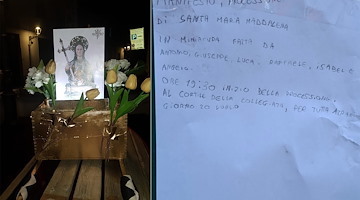 MANIFESTO, PROCESSIONE
DI SANTA MARIA MADDALENA
IN MINIATURA FATTA DA
ANTONIO, GIUSEPPE, LUCA, RAFFAELE, ISABEL E
ORE 19:30 INIZIO DELLA PROCESSIONE
AL CORTILE DELLA COLLEGIATA, PER TUTTA
GIORNO 20 LUGLIO